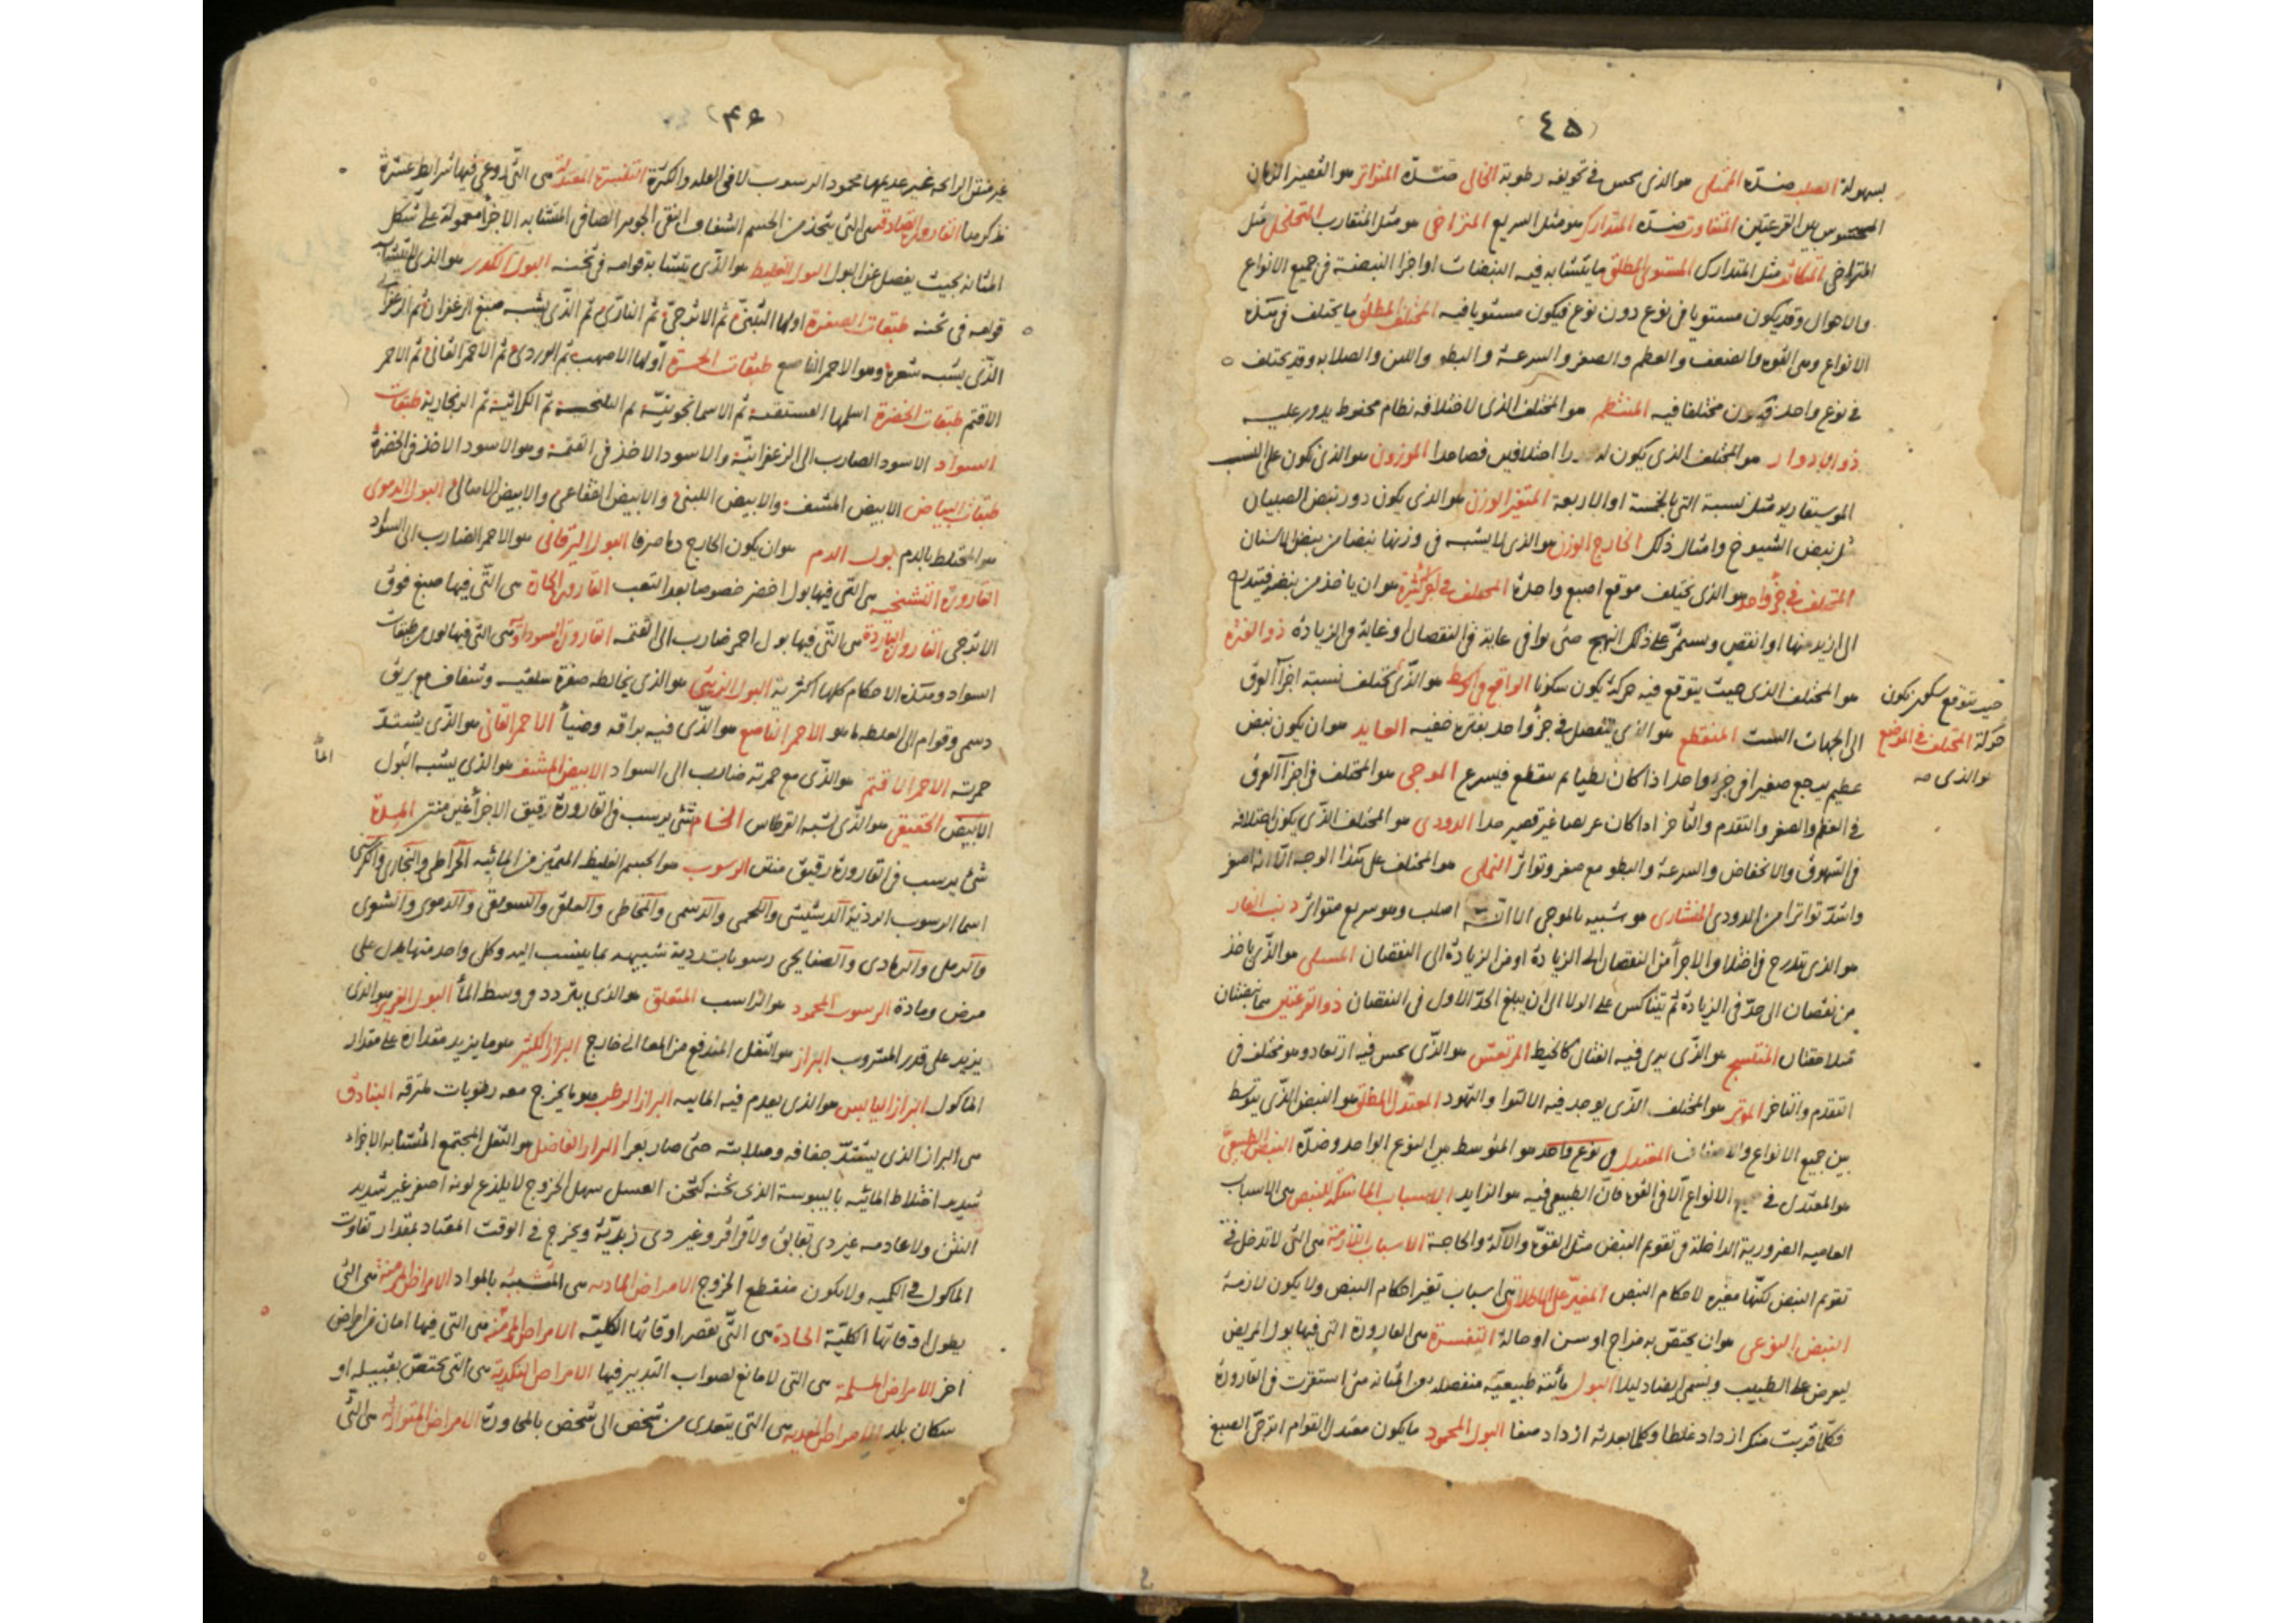 (٤٥)
بسهولة الصلب ضدّه الممتلى هو الذى يحس فى تجويفه رطوبة الخالى ضدّه المتواتر هو القصير الزمان
المحسوس بين القرعتين المتفاوت ضدّه المتدارك هو مثل السريع المتراخى هو مثل المتقارب المتخلخل مثل
المتراخى المتكاثف مثل المتدارك المستوى المطلق ما يتشابه فيه النبضات او اجزا النبضة فى جميع الانواع
والاحوال وقد يكون مستويا فى نوع دون نوع فيكون مستويا فيه المختلف المطلق ما يختلف فى هذه
الانواع وهى القوه والضعف والعظم والصغر والسرعة والبطو واللين والصلابه وقد يختلف
فى نوع واحد فيكون مختلفا فيه المنتظم هو المختلف الذى لاختلافه نظام محفوظ يدور عليه
ذو الادوار هو المختلف الذى يكون له دورا اختلافين فصاعدا الموزون هو الذى يكون على النسب
الموسيقاريه مثل نسبة التى بالخمسة او الاربعة المتغير الوزن هو الذى يكون دور نبض الصبيان
مثل نبض الشيوخ وامثال ذلك الخارج الوزن هو الذى لا يشبه فى وزنها نبضا من نبض الاسنان
المختلف فى جزؤ واحد هو الذى يختلف موقع اصبع واحدة المختلف فى اجزا كثيرة هو ان ياخذ من نبض فيتدرج
الى ازيد منها او انقص ويستمرّ على ذلك النهج حتى يوافى غاية فى النقصان او غاية فى الزيادة ذو الفترة
هو المختلف الذى حيث يتوقع فيه حركة يكون سكونا الواقع فى الوسط هو الذى يختلف نسبة اجزا العرق
الى الجهات الست المنقطع هو الذى ينفصل فى جزؤ واحد بفترة خفيه العايد هو ان يكون نبض
عظيم يرجع صغيرا فى جزؤ واحد اذا كان بطيا ثم ينقطع فيسرع الموجى هو المختلف فى اجزا العرق
فى العظم والصغر والتقدم والتأخر اذا كان عريضا غير قصير جدا الدودى هو المختلف الذى يكون اختلافه
فى الشهوق والانخفاض والسرعة والبطو مع صغر وتواتر النملى هو المختلف على هذا الوجه الا انه اصغر
واشدّ تواترا من الدودى المنشارى هو شبيه بالموجى الا انه اصلب وهو سريع متواتر ذنب الفار
هو الذى يتدرج فى اختلاف الاجزأ من النقصان الى الزيادة او من الزيادة الى النقصان المسلى هو الذى ياخذ
من نقصان الى حدّ فى الزيادة ثم يتناكس على الولا الى ان يبلغ الحدّ الاول فى النقصان ذو القرعتين هما نبضتان
متلاحقتان المتشنج هو الذى يرى فيه الفتال كالخيط المرتعش هو الذى يحس فيه ارتعاد وهو مختلف فى
التقدم والتاخر الموتر هو المختلف الذى يوجد فيه الالتوا والتمدد المعتدل المطلق هو النبض الذى يتوسط
بين جميع الانواع والاصناف المعتدل فى نوع واحد هو المتوسط بين النوع الواحد وضدّه النبض الطبيعى
هو المعتدل فى جميع الانواع الا فى القوه فان الطبيعى فيه هو الزايد الاسباب الماسكة للنبض هى الاسباب
العاميه الضرورية الداخلة فى تقويم النبض مثل القوة والآلة والحاجة الاسباب اللازمة هى التى لا تدخل فى
تقوم النبض لكنها مغيره لاحكام النبض المغير على الاطلاق هى اسباب تغير احكام النبض ولا يكون لازمة
النبض النوعى هو ان يختص به مزاج او سن او حالة التفسرة هى القارورة التى فيها بول المريض
ليعرض على الطبيب ويسمى ايضا دليلا البول مائية طبيعيّة منفصله عن المثانه متى استقرت فى القارورة
فكلّما قربت منك ازداد غلظا وكلما بعدته ازداد صفا البول المحمود ما يكون معتدل القوام اترجىّ الصبغ
حيث يتوقع سكون يكون
حركة المختلف فى الموضع
هو الذى صه
(٤٦)
غير منتن الرايحة غير عديمها محمود الرسوب لا فى القله والكثرة التفسرة المعتدلة هى التى روعى فيها شرايط عشرة
نذكرها القارورة الصادقه هى التى يتخذ من الجسم الشفاف النقى الجوهر الصافى المتشابه الاجزأ معمولة على شكل
المثانه بحيث يفصل عن البول البول الغليظ هو الذى يتشابه قوامه فى ثخنه البول الكدر هو الذى لا يتشابه
قوامه فى ثخنه طبقات الصفرة اولها التبنىّ ثم الاترجىّ ثم النارىّ ثم الذى يشبه صبغ الزعفران ثم الزعفرانى
الذى يشبه شعرة وهو الاحمر الناصع طبقات الحمرة اولها الاصهب ثم الوردى ثم الاحمر القانى ثم الاحمر
الاقتم طبقات الخضرة اسلمها الفستقية ثم الاسمانجونيّة ثم النيلنجية ثم الكراثية ثم الزنجارية طبقات
السواد الاسود الضارب الى الزعفرانيّة والاسود الاخذ فى القتمة وهو الاسود الاخذ فى الخضرة
طبقات البياض الابيض المشف والابيض اللبنى والابيض الفقاعى والابيض الاصالى البول الدموى
هو المختلط بالدم بول الدم هو ان يكون الخارج دما صرفا البول اليرقانى هو الاحمر الضارب الى السواد
القارورة التشنجيه هى التى فيها بول اخضر خصوصا بعد التعب القارورة الحارة هى التى فيها صبغ فوق
الاترجى القارورة الباردة هى التى فيها بول احمر ضارب الى القتمه القارورة السوداوية هى التى فيها بول من طبقات
السواد وهذه الاحكام كلها اكثرية البول الزيتى هو الذى يخالطه صفرة سلقيه وشفاف مع بريق
دسمى وقوام الى الغلظ ما هو الاحمر الناصع هو الذى فيه براقه وضيأ الاحمر القانى هو الذى يشتدّ
حمرته الاحمر الاقتم هو الذى مع حمرته ضارب الى السواد الابيض المشف هو الذى يشبه البول
الابيض الحقيقى هو الذى يشبه القرطاس الخام شئ يرسب فى القارورة رقيق الاجزأ غير منتن المدة
شئ يرسب فى القارورة رقيق منتن الرسوب هو الجسم الغليظ المتميز من المائيه الخراطى والنخارى والكرسنى
اسما الرسوب الردية الدشيشى واللحمى والدسمى والمخاطى والعلقى والسويقى والدموى والشعرى
والرملى والرمادى والصفايحى رسوبات ردية شبيهه بما ينسب اليه وكل واحد منها يدل على
مرض ومادة الرسوب المحمود هو الراسب المتعلق هو الذى يتردد فى وسط المأ البول الغزير هو الذى
يزيد على قدر المشروب البراز هو الثفل المندفع من المعا الى خارج البراز الكثير هو ما يزيد مقداره على مقدار
الماكول البراز اليابس هو الذى يعدم فيه المائيه البراز الرطب هو ما يخرج معه رطوبات لمترقه البنادق
هى البراز الذى يشتدّ جفافه وصلابته حتى صار بعرا البراز الفاضل هو الثفل المجتمع المتشابه الاجزاء
شديد اختلاط المائيه باليبوسة الذى ثخنه كثخن العسل سهل الخروج لا يلذع لونه اصفر غير شديد
النتن ولا عادمه غير ذى بقابق ولا قراقر وغير ذى زبديّة ويخرج فى الوقت المعتاد بمقدار تفاوت
الماكول فى الكميه ولا يكون منقطع الخروج الامراض الماديه هى المتشبثة بالمواد الامراض المزمنة هى التى
يطول اوقاتها الكليّة الحادة هى التى تقصر اوقاتها الكليّة الامراض المؤمنة هى التى فيها امان من امراض
اخر الامراض المسلمة هى التى لا مانع لصواب التدبير فيها الامراض البلدية هى التى يختصّ بقبيله او
سكان بلد الامراض المعديه هى التى يتعدى من شخص الى شخص بالمجاورة الامراض المتوارثه هى التى
المأ